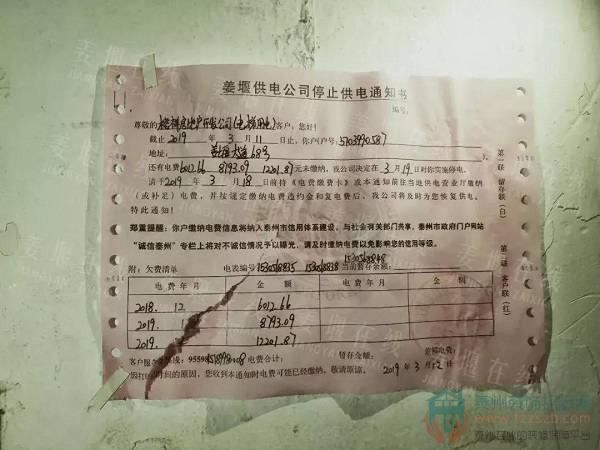 姜堰供电公司停止供电通知书
编号:
尊敬的 房地产开发公司(电梯用电) 客户:您好!
截止 2019 年 3 月 11 日止,你户(户号: 5703990587
地址: 大道 68号 ),
还有电费 6012.66 8793.09 12201.87 元未缴纳,我公司决定在 3 月 19 日对你实施停电。
请于 2019 年 3 月 18 日前持《电费缴费卡》或本通知前往当地供电营业厅缴纳
(或补足)电费,并按规定缴纳电费违约金和复电费后,我公司将及时为您恢复供电。
特此通知!
郑重提醒:你户缴纳电费信息将纳入泰州市信用体系建设,与社会有关部门共享,泰州市政府门户网站
“诚信泰州”专栏上将对不诚信情况予以曝光,请及时缴纳电费以免影响您的信用等级。
附:欠费清单 电表编号 1530568835 1530568838 1530568848 当前暂存余额:
电费年月 金额 电费年月 金额
2018. 12 6012.66
2019. 8793.09
2019. 12201.87
客户服务热线:95598 电费合计: 暂存金额: 差额电费:
因打印时间的原因,您收到本通知时电费可能已经缴纳,敬请原谅。 2019 年 3 月 12 日
第一联 留存联(白)
第二联 客户联(红)
姜堰在线
www.tzzszb.com
泰州专业的装修保障平台